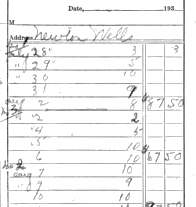 Date, 193
M
Address Newton Wells
July 28" 3 3
" 29" 5
" 30 10
" 31 9
Aug 2 8 87 50
"2 2
"4 5
"5 10
6 10 67 50
Aug 7 10
" 9 9
10 10